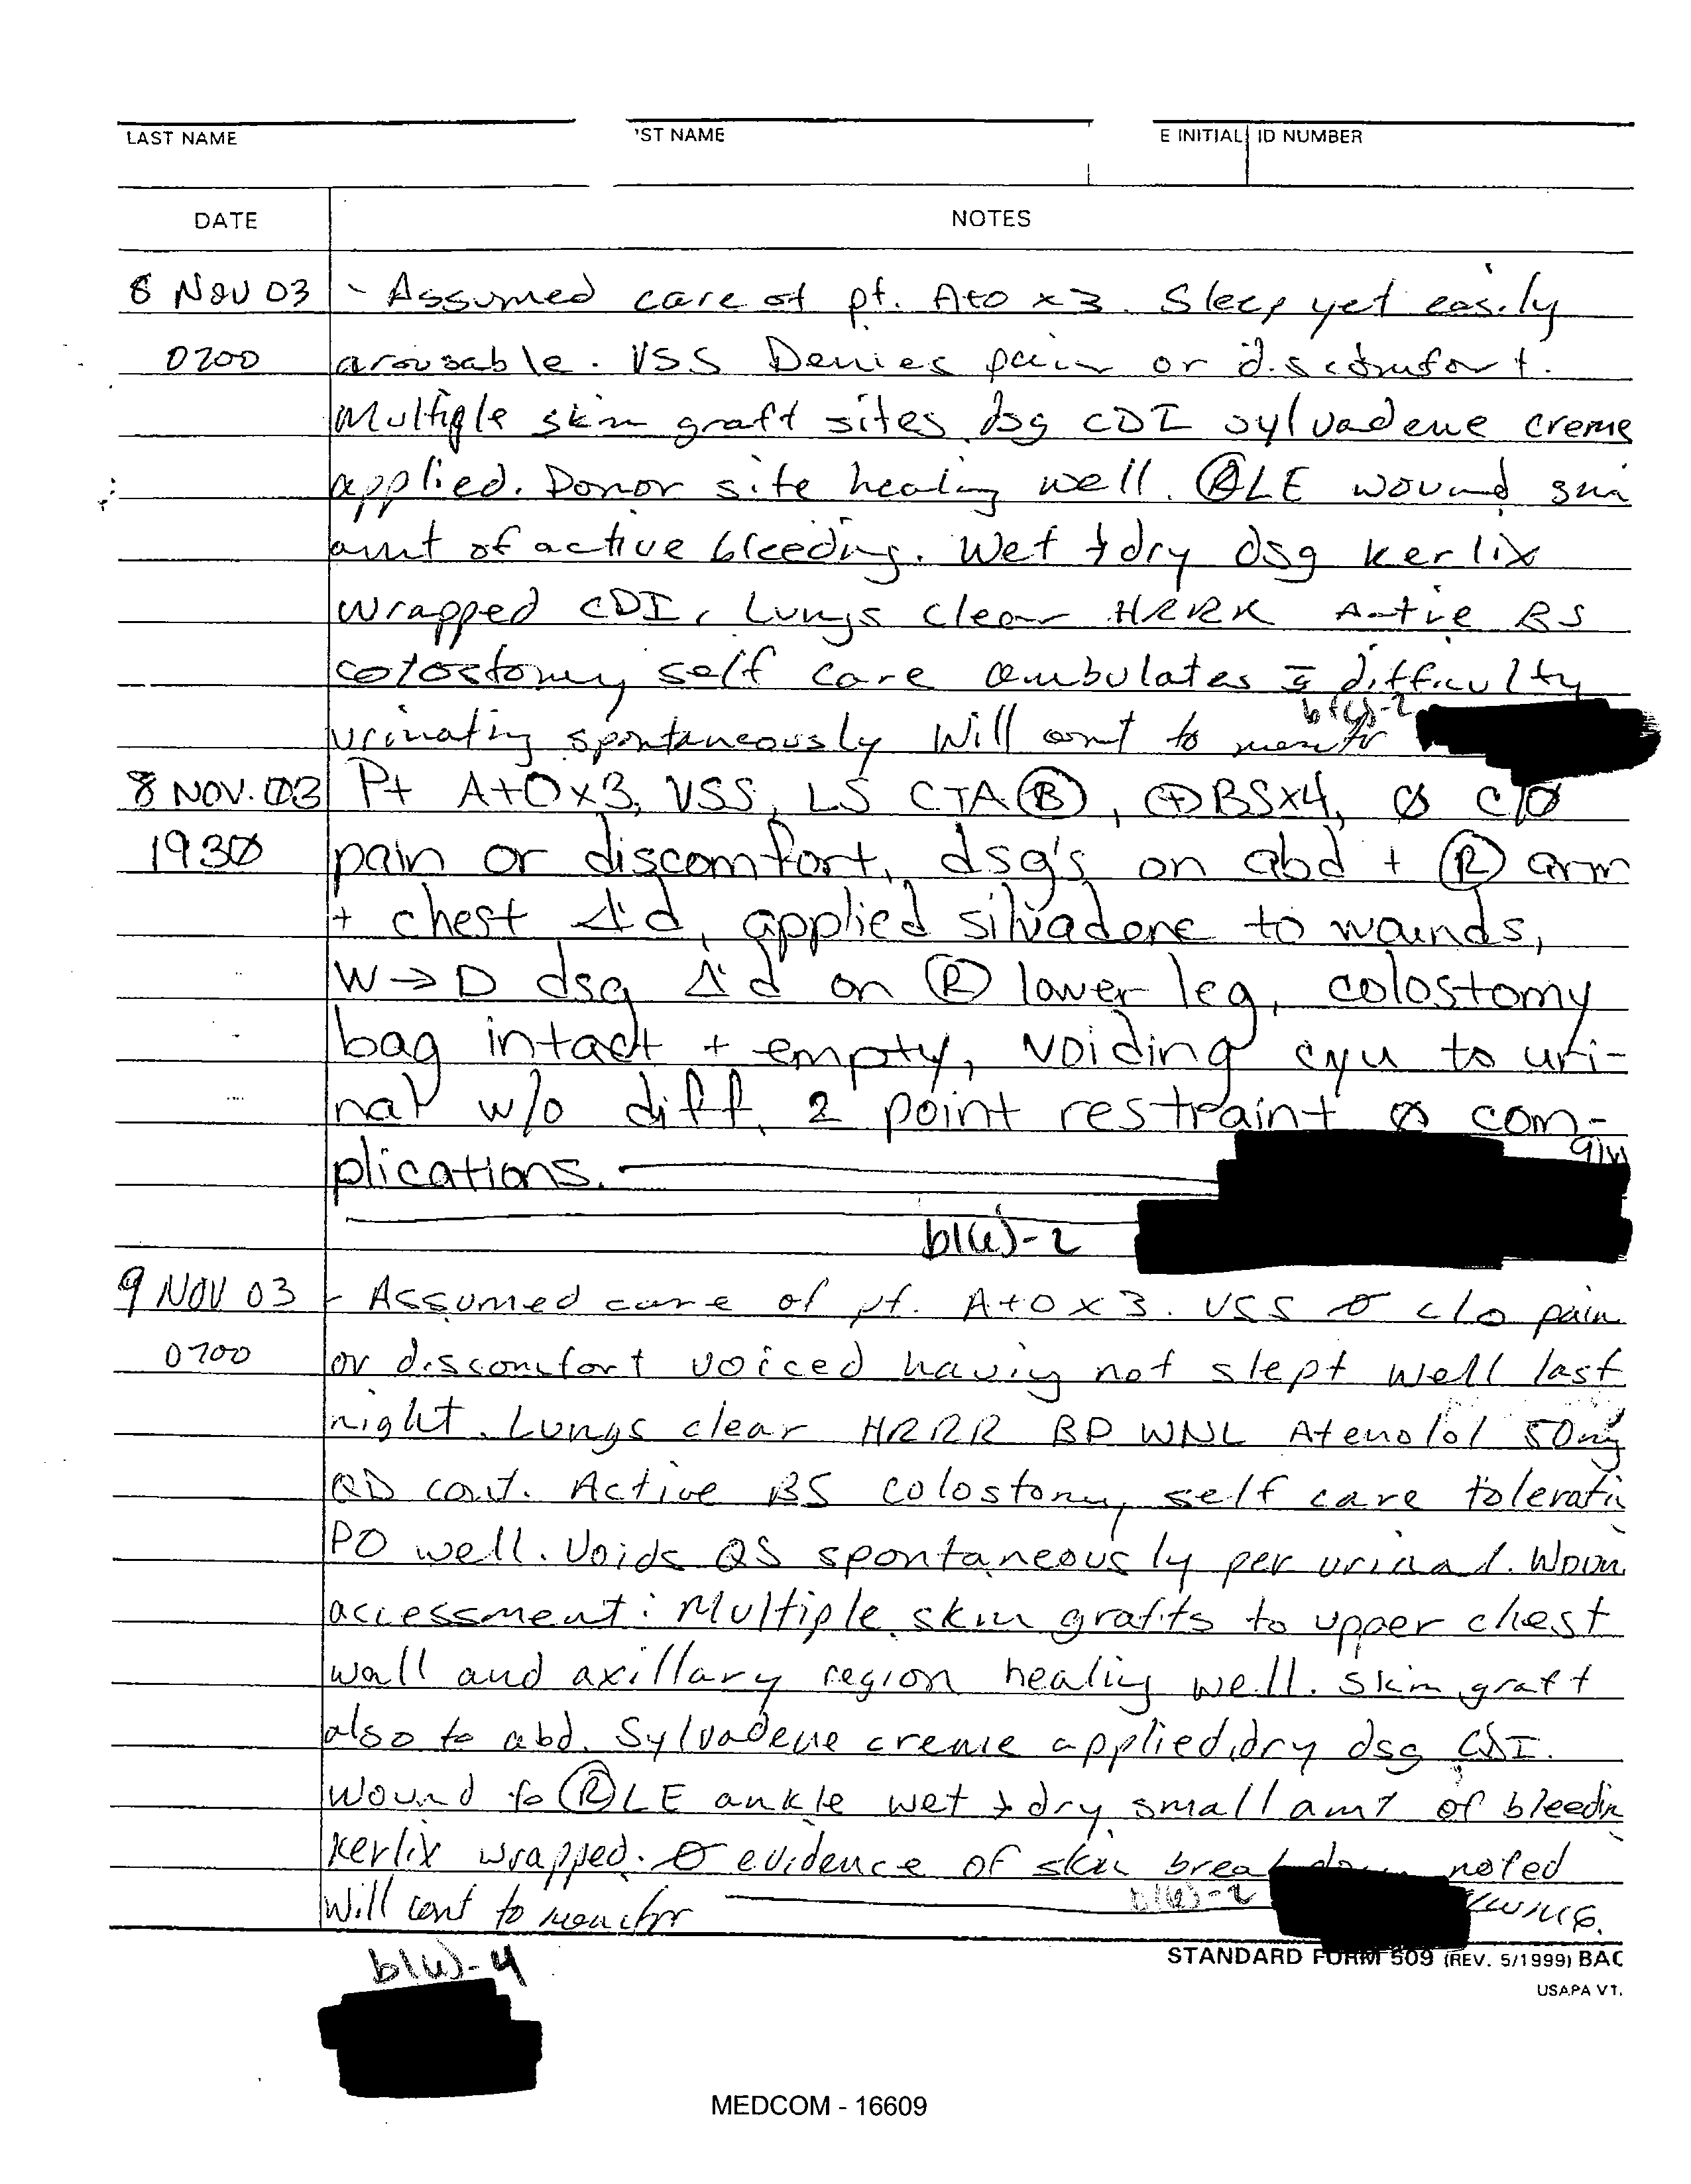 LAST NAME 'ST NAME E INITIAL ID NUMBER
DATE NOTES
8 Nov 03 - Assumed care of pt. A+O x3. Sleep yet easily
0700 arousable. VSS Denies pain or discomfort.
Multiple skin graft sites dsg CDI sylvadene creme
applied. Donor site healing well. Ⓡ LE wound sm
amt of active bleeding. Wet + dry dsg kerlix
wrapped CDI, Lungs clear HRRR Active BS
colostomy self care ambulates difficulty
b(6)-2
urinating spontaneously Will cont to monitor
8 NOV. 03 Pt A+Ox3, VSS, LS CTA Ⓑ, ⊕BSx4, Ø C/O
1930 pain or discomfort, dsg's on abd + Ⓡ arm
+ chest Δ'd, applied silvadene to wounds,
W→D dsg Δ'd on Ⓡ lower leg, colostomy
bag intact + empty, voiding cyu to uri-
nal w/o diff, 2 point restraint Ø com-
plications.
b(6)-2
9 NOV 03 - Assumed care of pt. A+O x 3. VSS Ø c/o pain
0700 or discomfort voiced having not slept well last
night. Lungs clear HRRR BP WNL Atenolol 50mg
QD cont. Active BS colostomy self care toleratin
PO well. Voids QS spontaneously per urinal. Woun
accessment: Multiple skin grafts to upper chest
wall and axillary region healing well. Skin graft
also to abd. Sylvadene creme applied, dry dsg CDI.
Wound to Ⓡ LE ankle wet + dry small amt of bleedin
kerlix wrapped. Ø evidence of skin breakdown noted
Will cont to monitor b(6)-2
STANDARD FORM 509 (REV. 5/1999) BAC
USAPA V1.
b(6)-4
MEDCOM - 16609